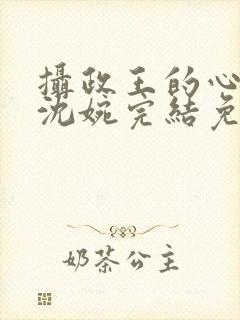 攝政王的心
沈婉完結免
奶茶公主